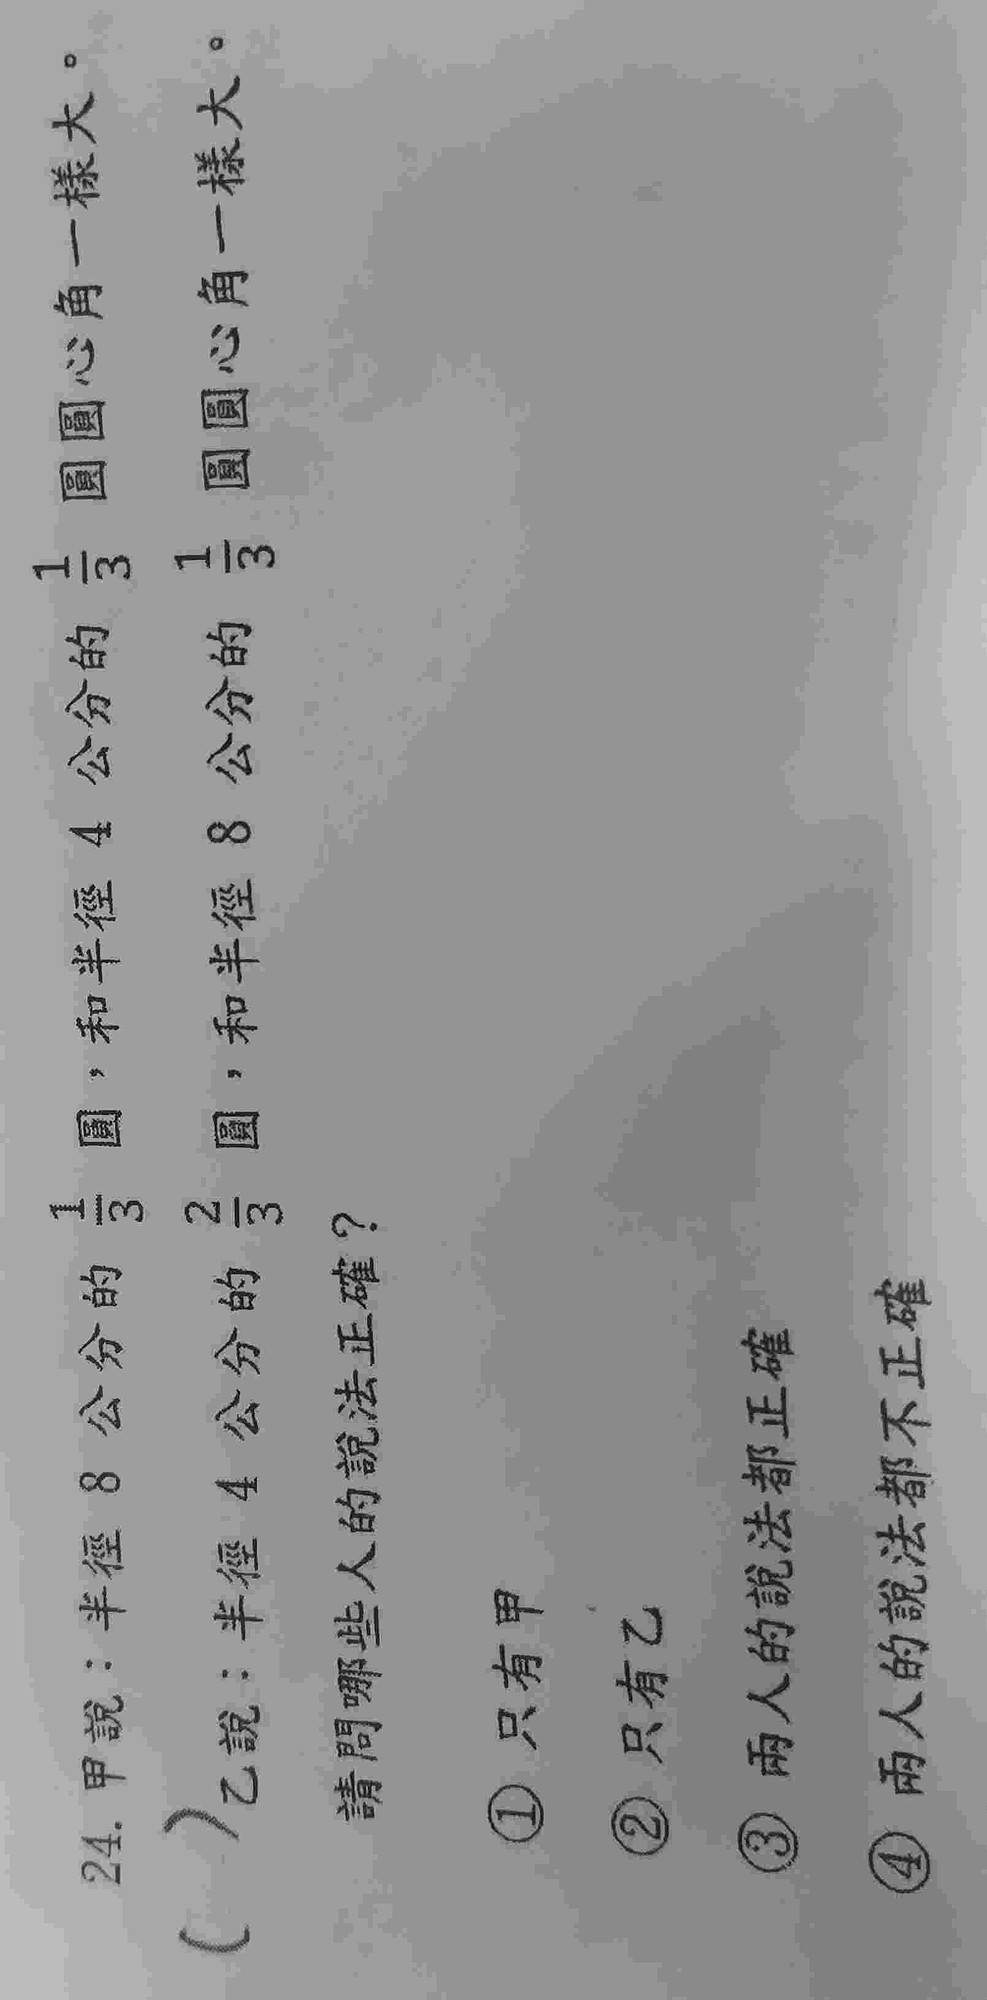 24. 甲說：半徑 8 公分的 1/3 圓，和半徑 4 公分的 1/3 圓圓心角一樣大。
( ) 乙說：半徑 4 公分的 2/3 圓，和半徑 8 公分的 1/3 圓圓心角一樣大。
請問哪些人的說法正確？
① 只有甲
② 只有乙
③ 兩人的說法都正確
④ 兩人的說法都不正確